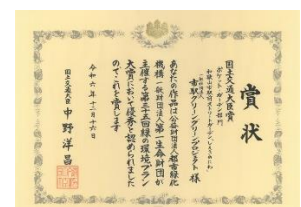 賞状
国土交通大臣賞
ポケット・ガーデン部門
市駅グリーングリーンプロジェクト 様
あなたの作品は公益財団法人都市緑化
機構一般財団法人第一生命財団が
主催する第三十五回緑の環境プラン
大賞において優秀と認められました
のでこれを賞します
令和六年十二月十六日
国土交通大臣 中野洋昌